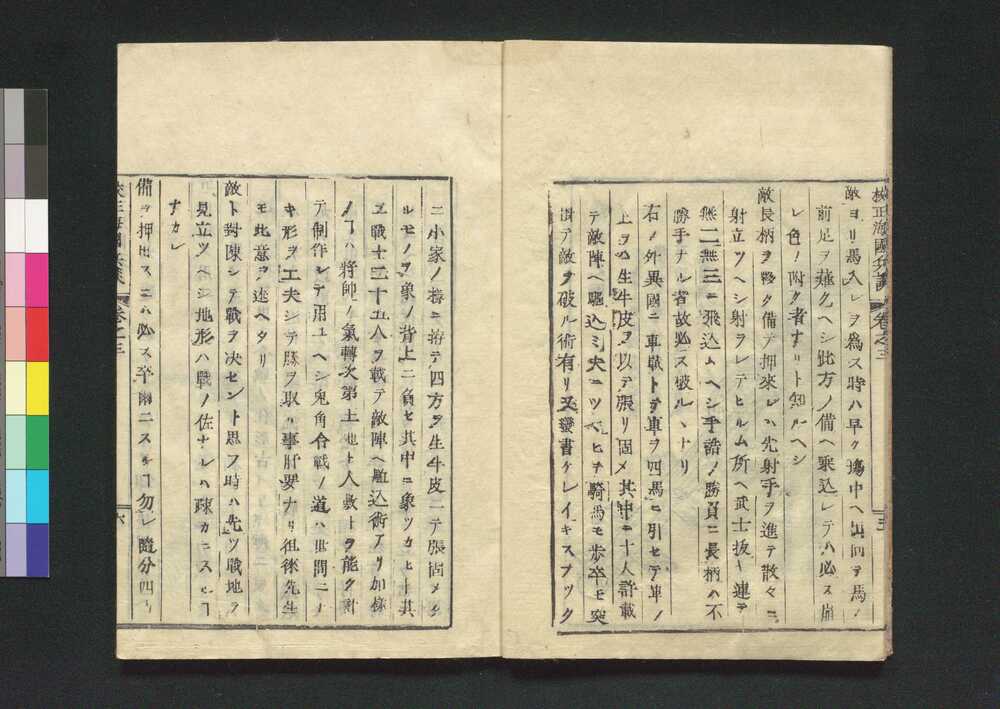 校正海國兵談 卷之三 五
敵ヨリ馬入レヲ為ス時ハ早ク塲中ヘ出向テ馬ノ
前足ヲ薙クヘシ此方ノ備ヘ乘込レテハ必ス崩
レ色ノ附ク者ナリト知ルヘシ
敵長柄ヲ備テ押來レハ先射手ヲ進テ散々ニ
射立ツヘシ射ラレテヒルム所ヘ武士抜キ連テ
無二無三ニ飛込ムヘシ手詰ノ勝負ニ長柄ハ不
勝手ナル者故必ス破ルヽナリ
右ノ外異國ニ車戰トテ車ヲ四馬ニ引セテ車ノ
上ヲハ生牛皮ヲ以テ張リ固メ其中ニ十人許載
テ敵陣ヘ驅込ミ大ニツヘヒテ騎馬モ歩卒モ突
潰テ敵ヲ破ル術有リ又蠻書ゲレイキスブック
ニ小家ノ樣ニ拵テ四方ヲ生牛皮ニテ張固メタ
ルモノヲ象ノ背上ニ負セ其中ニ象ツカヒト其
ニ戰士二三十五人ヲ載テ敵陣ヘ驅込術アリ加樣
ノヿハ將帥ノ氣轉次第土地ト人数トヲ能ク計
テ制作シテ用ユヘシ兎角合戰ノ道ハ世間ニナ
キ形ヲ工夫シテ勝ヲ取ル事肝要ナリ徂徠先生
モ此意ヲ述ヘタリ
敵ト對陳シテ戰ヲ决セント思フ時ハ先ツ戰地ヲ
見立ツヘシ地形ハ戰ノ佐ナレハ疎カニスヘヿ
ナカレ
備ヲ押出スニハ必ス卒爾ニスルヿ勿レ隨分四
校正海國兵談 卷之三 六